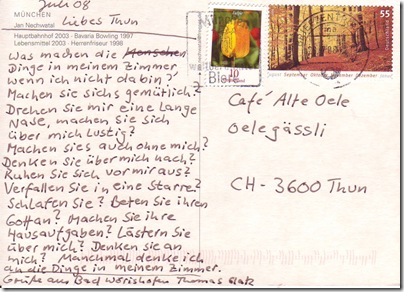 Juli 08
MÜNCHEN
Jan Nechvatal
Hauptbahnhof 2003 - Bavaria Bowling 1997
Lebensmittel 2003 - Herrenfriseur 1998
Liebes Thun
Was machen die Menschen
Dinge in meinem Zimmer
wenn ich nicht da bin?
Machen sie sichs gemütlich?
Drehen sie mir eine lange
Nase, machen sie sich
über mich lustig?
Machen sies auch ohne mich?
Denken sie über mich nach?
Ruhen sie sich vor mir aus?
Verfallen sie in eine Starre?
Schlafen sie? Beten sie ihren
Gott an? Machen sie ihre
Hausaufgaben? Lästern sie
über mich? Denken sie an
mich? Manchmal denke ich
an die Dinge in meinem Zimmer.
Grüße aus Bad Wörishofen Thomas Glatz
10
55
Deutschland
Bier
Café Alte Oele
Oelegässli
CH - 3600 Thun